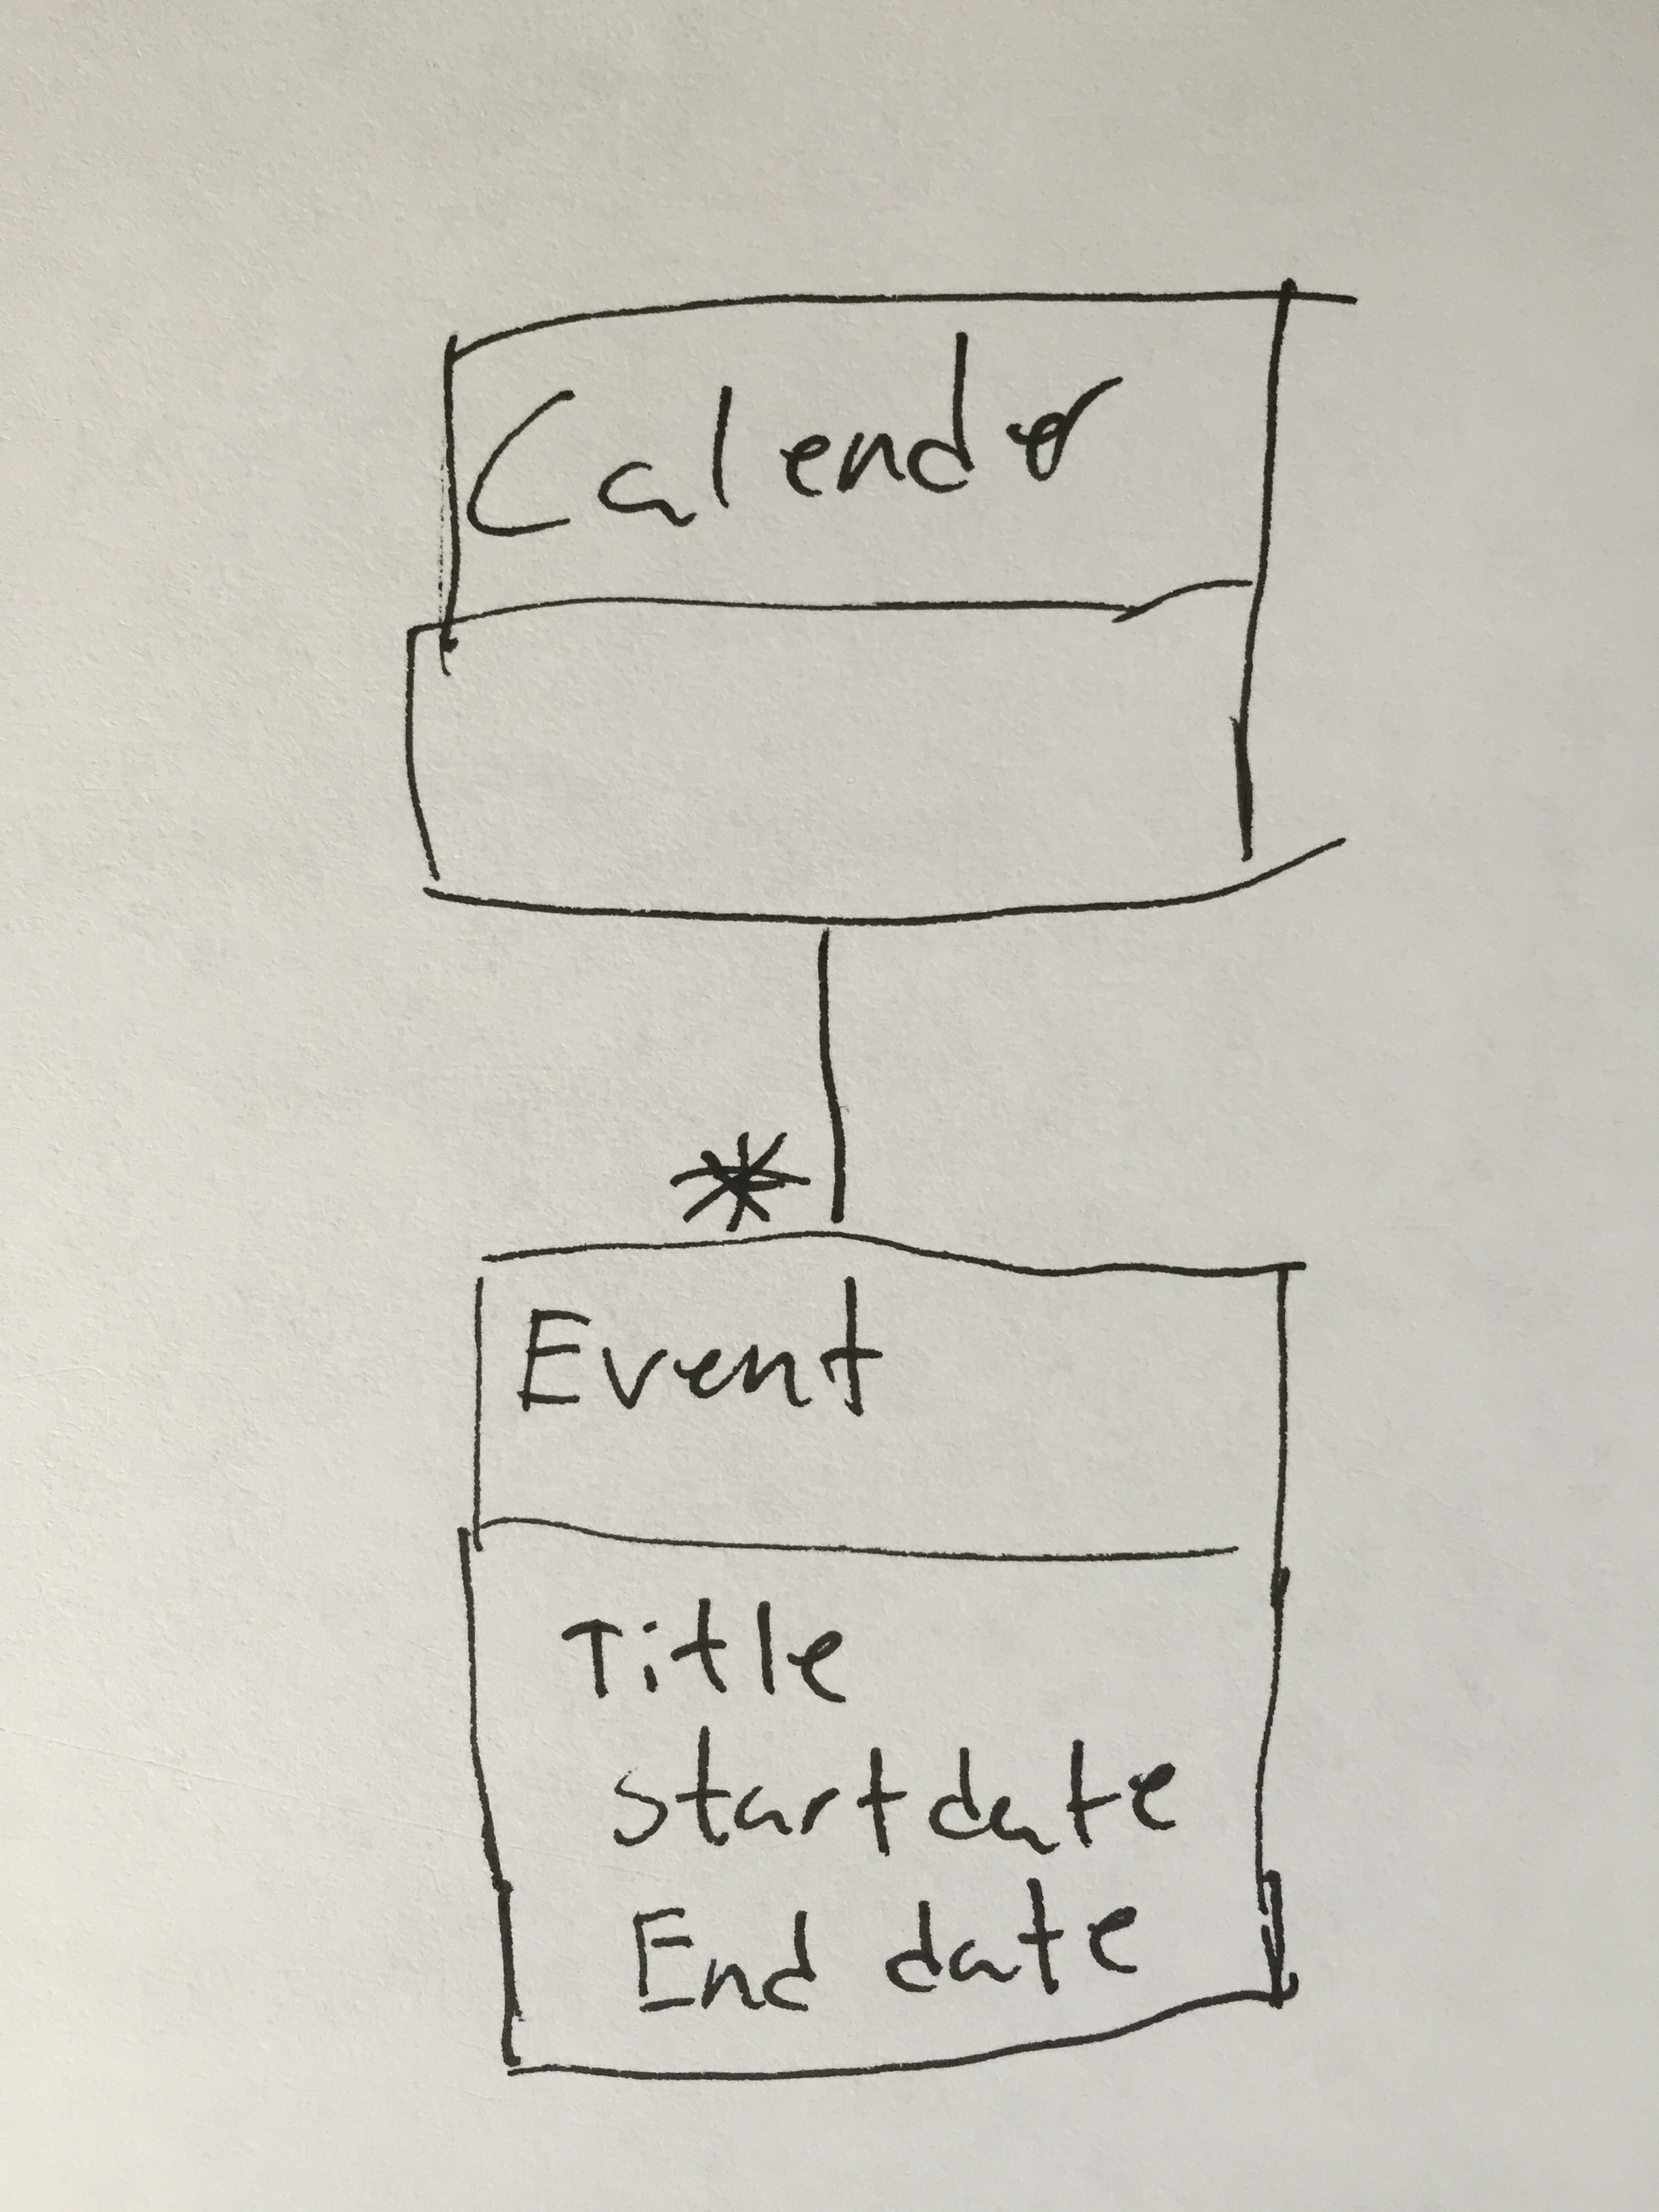 Calendar
*
Event
Title
Startdate
End date